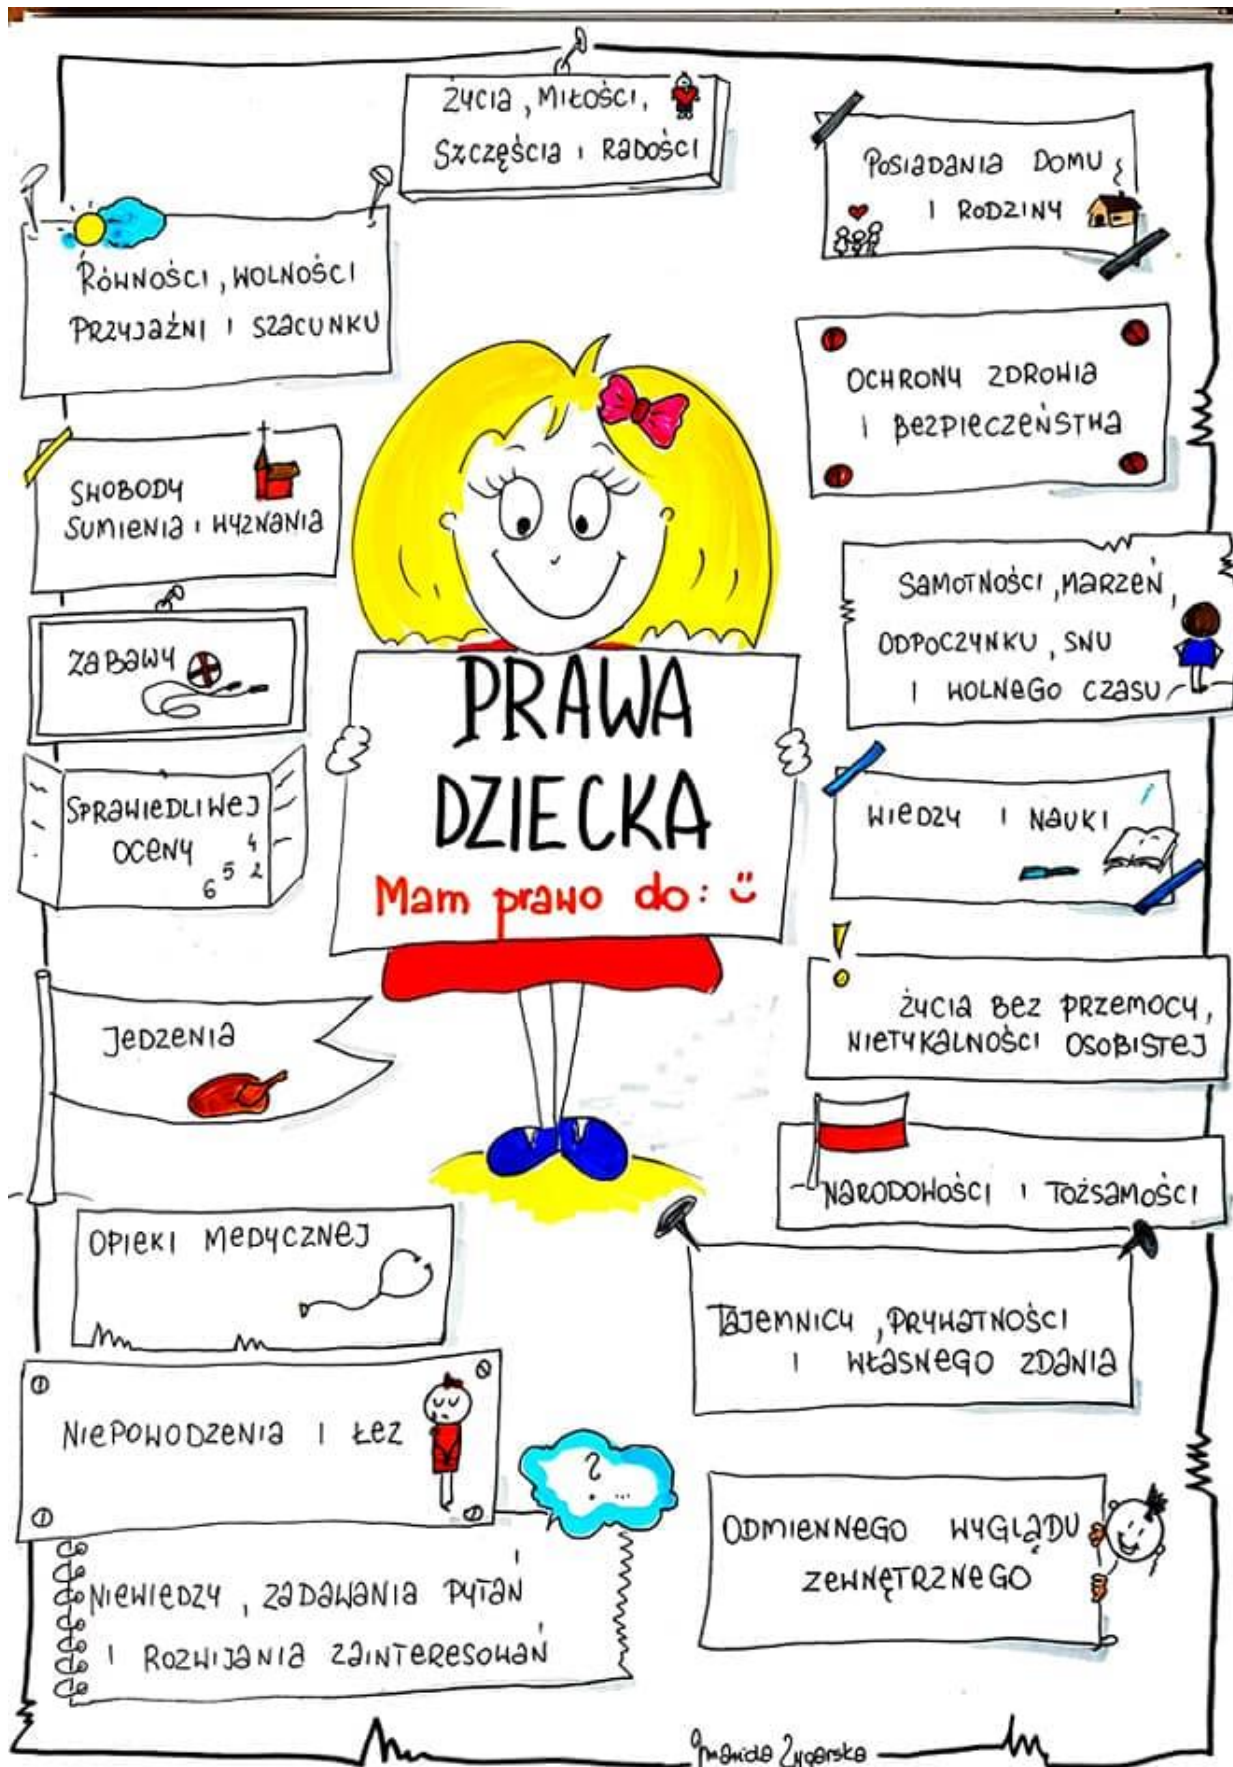 Życia, Miłości,
Szczęścia i Radości
Posiadania Domu
i Rodziny
Równości, Wolności
Przyjaźni i Szacunku
Ochrony Zdrowia
i Bezpieczeństwa
Swobody
Sumienia i Wyznania
Samotności, Marzeń,
Odpoczynku, Snu
i Wolnego Czasu
Zabawy
PRAWA
DZIECKA
Mam prawo do:
Sprawiedliwej
Oceny
4
6 5 2
Wiedzy i Nauki
!
Życia bez przemocy,
Nietykalności osobistej
Jedzenia
Narodowości i Tożsamości
Opieki Medycznej
Tajemnicy, Prywatności
i Własnego Zdania
Niepowodzenia i Łez
? ...
Niewiedzy, Zadawania Pytań
i Rozwijania Zainteresowań
Odmiennego Wyglądu
Zewnętrznego